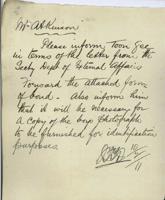 Mr Atkinson
Please inform Toon Gee
in terms of the letter from the
Secty Dept of External Affairs
Forward the attached form
of bond. Also inform him
that it will be necessary for
a copy of the boys Photograph
to be furnished for identification
purposes